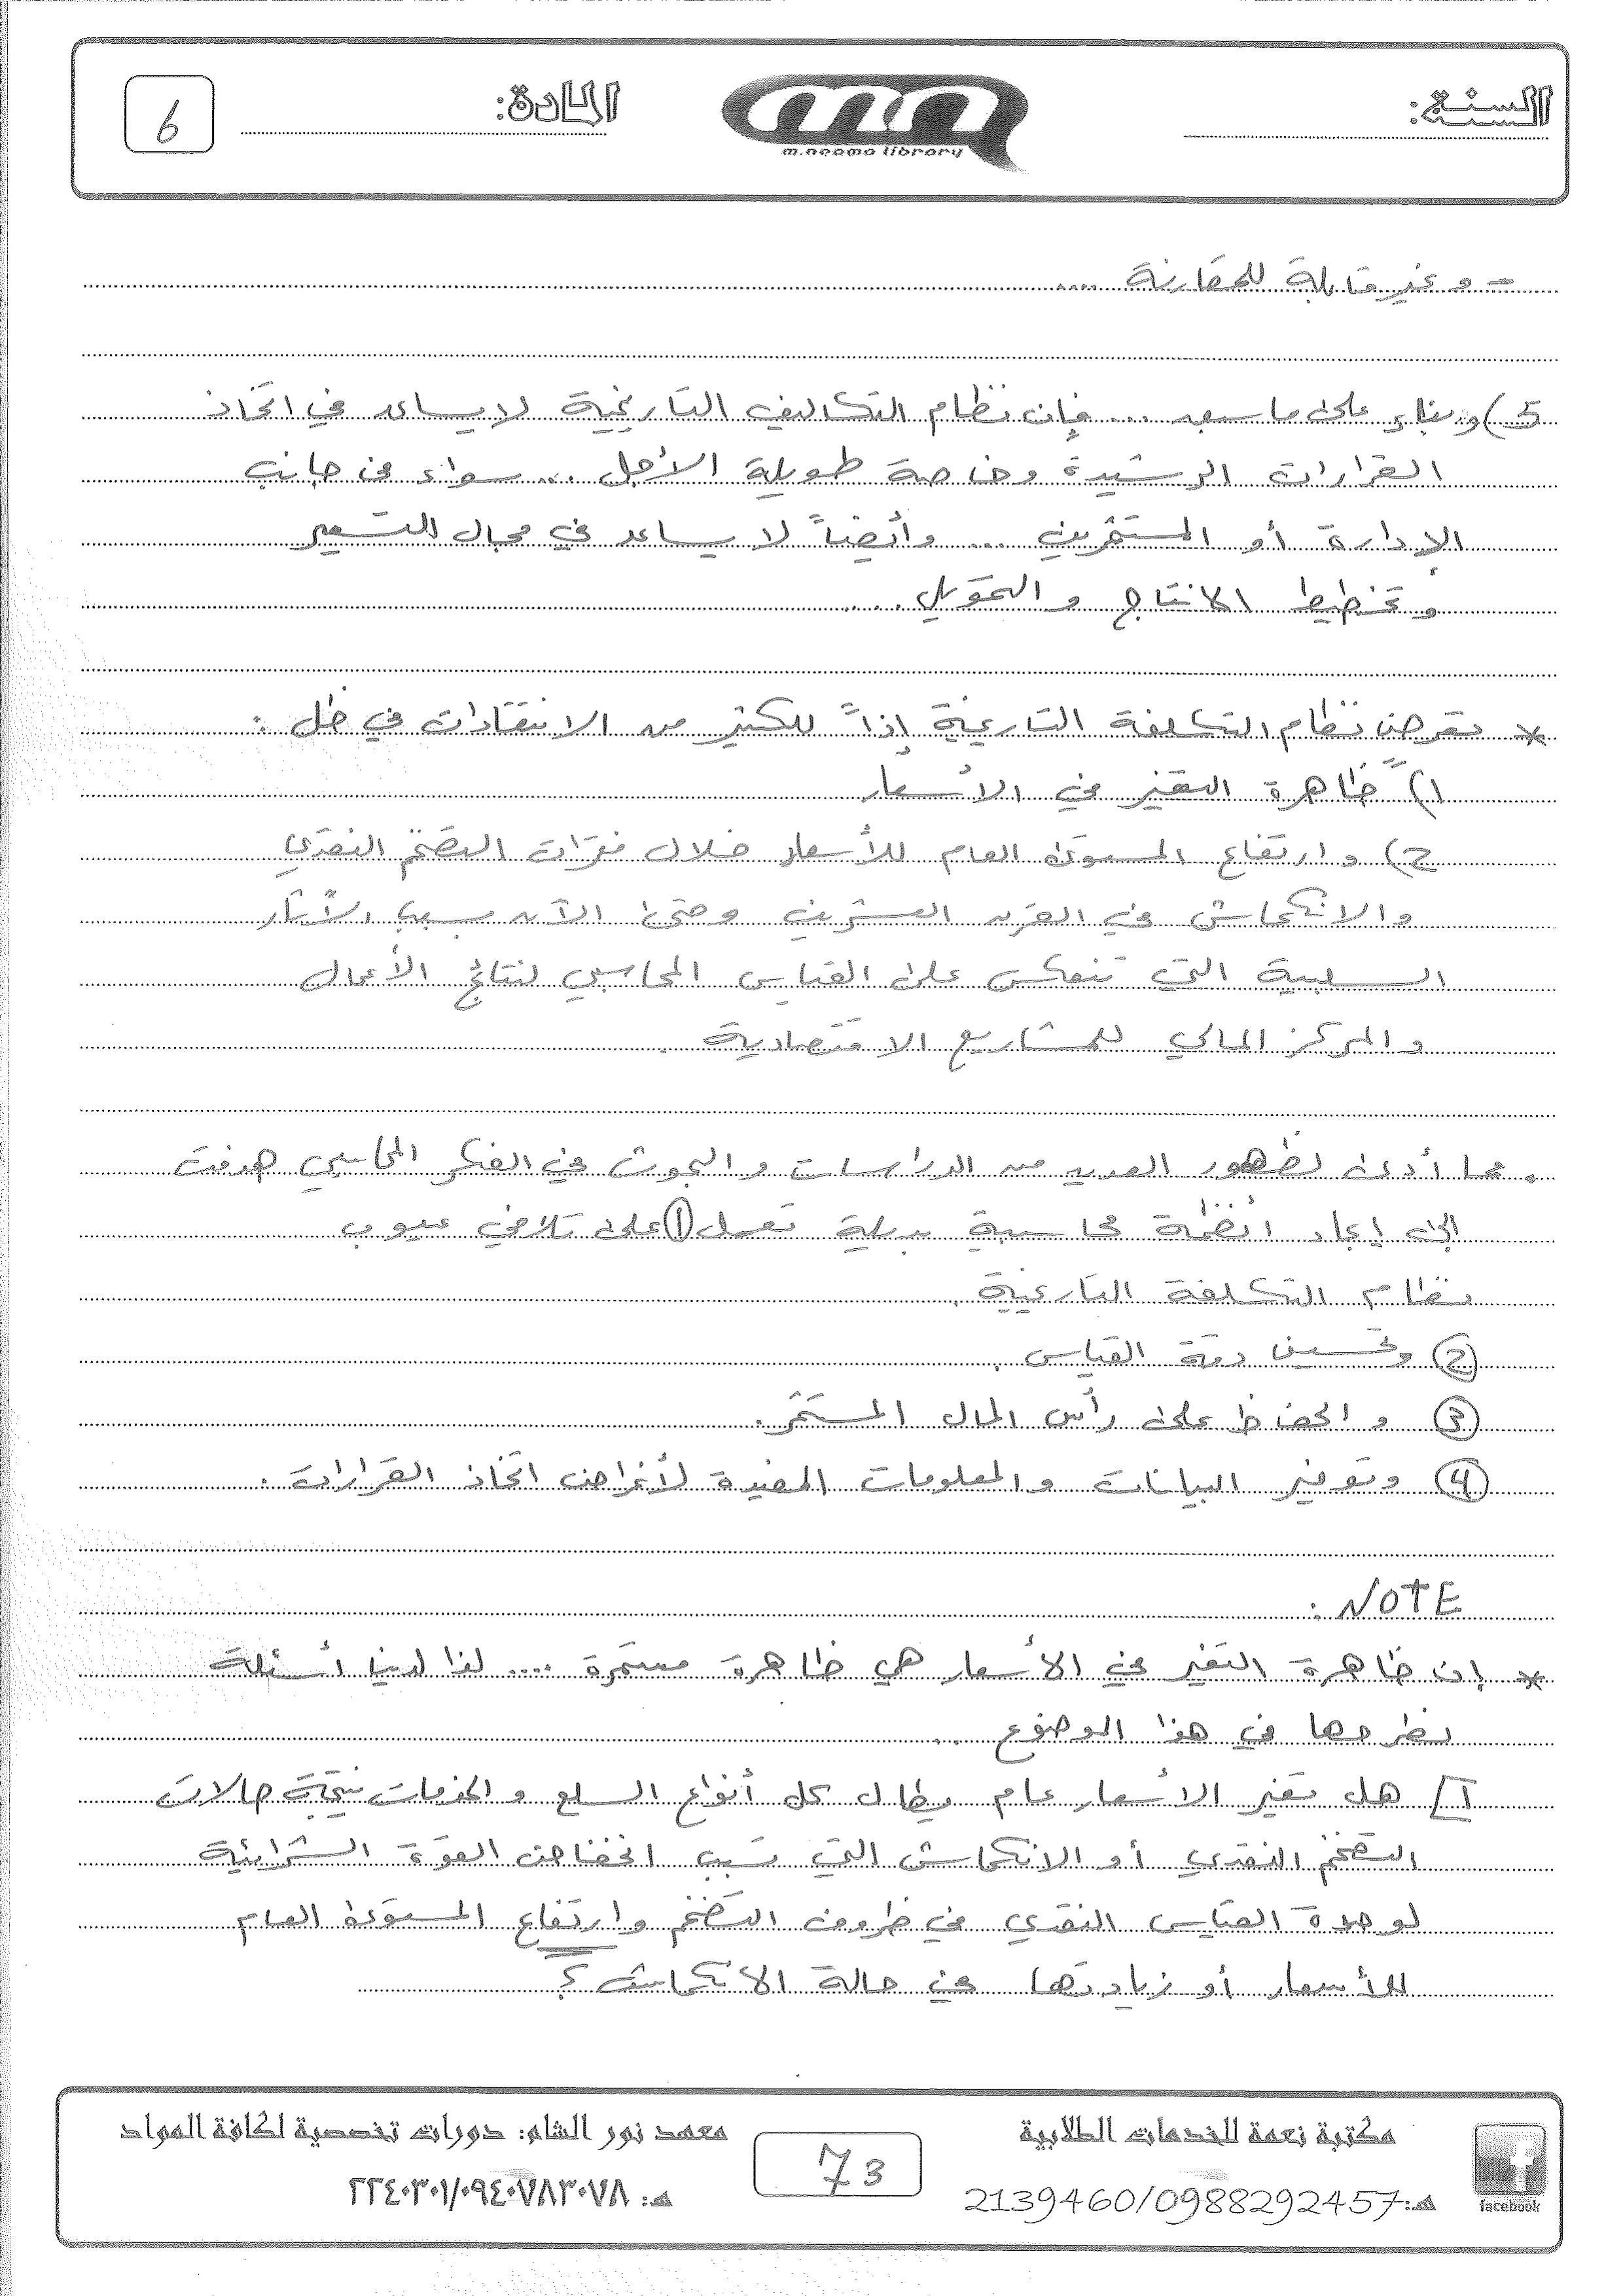 السنة:
m.neama library
المادة:
6
- وغير قابلة للمقارنة ....
5) وبناء على ما سبق ... فإن نظام التكاليف التاريخية لا يساعد في اتخاذ
القرارات الرشيدة وخاصة طويلة الأجل ... سواء من جانب
الإدارة أو المستثمرين ... وأيضاً لا يساعد في مجال التسعير
وتخطيط الانتاج والتمويل ....
* تعرض نظام التكلفة التاريخية إذاً للكثير من الانتقادات في ظل :
1) ظاهرة التغير في الأسعار
2) وارتفاع المستوى العام للأسعار خلال فترات التضخم النقدي
والانكماش في القرن العشرين وحتى الآن بسبب الآثار
السلبية التي تنعكس على القياس المحاسبي لنتائج الأعمال
والمركز المالي للمشاريع الاقتصادية .
. مما أدى لظهور العديد من الدراسات والبحوث في الفكر المحاسبي هدفت
إلى إيجاد أنظمة محاسبية بديلة تعمل ① على تلافي عيوب
نظام التكلفة التاريخية .
② وتحسين دقة القياس .
③ والحفاظ على رأس المال المستثمر .
④ وتوفير البيانات والمعلومات المفيدة لأغراض اتخاذ القرارات .
NOTE :
* إن ظاهرة التغير في الأسعار هي ظاهرة مستمرة .... لذا لدينا أسئلة
نطرحها في هذا الموضوع ..
1] هل تغير الأسعار عام يطال كل أنواع السلع والخدمات نتيجة حالات
التضخم النقدي أو الانكماش التي تسبب انخفاض القوة الشرائية
لوحدة القياس النقدي في ظروف التضخم وارتفاع المستوى العام
للأسعار أو زيادتها في حالة الانكماش ؟
مكتبة نعمة للخدمات الطلابية
هـ: 2139460/0988292457
facebook
73
معهد نور الشام: دورات تخصصية لكافة المواد
هـ: ٢٢٤٠٣٠١/٠٩٤٠٧٨٣٠٧٨